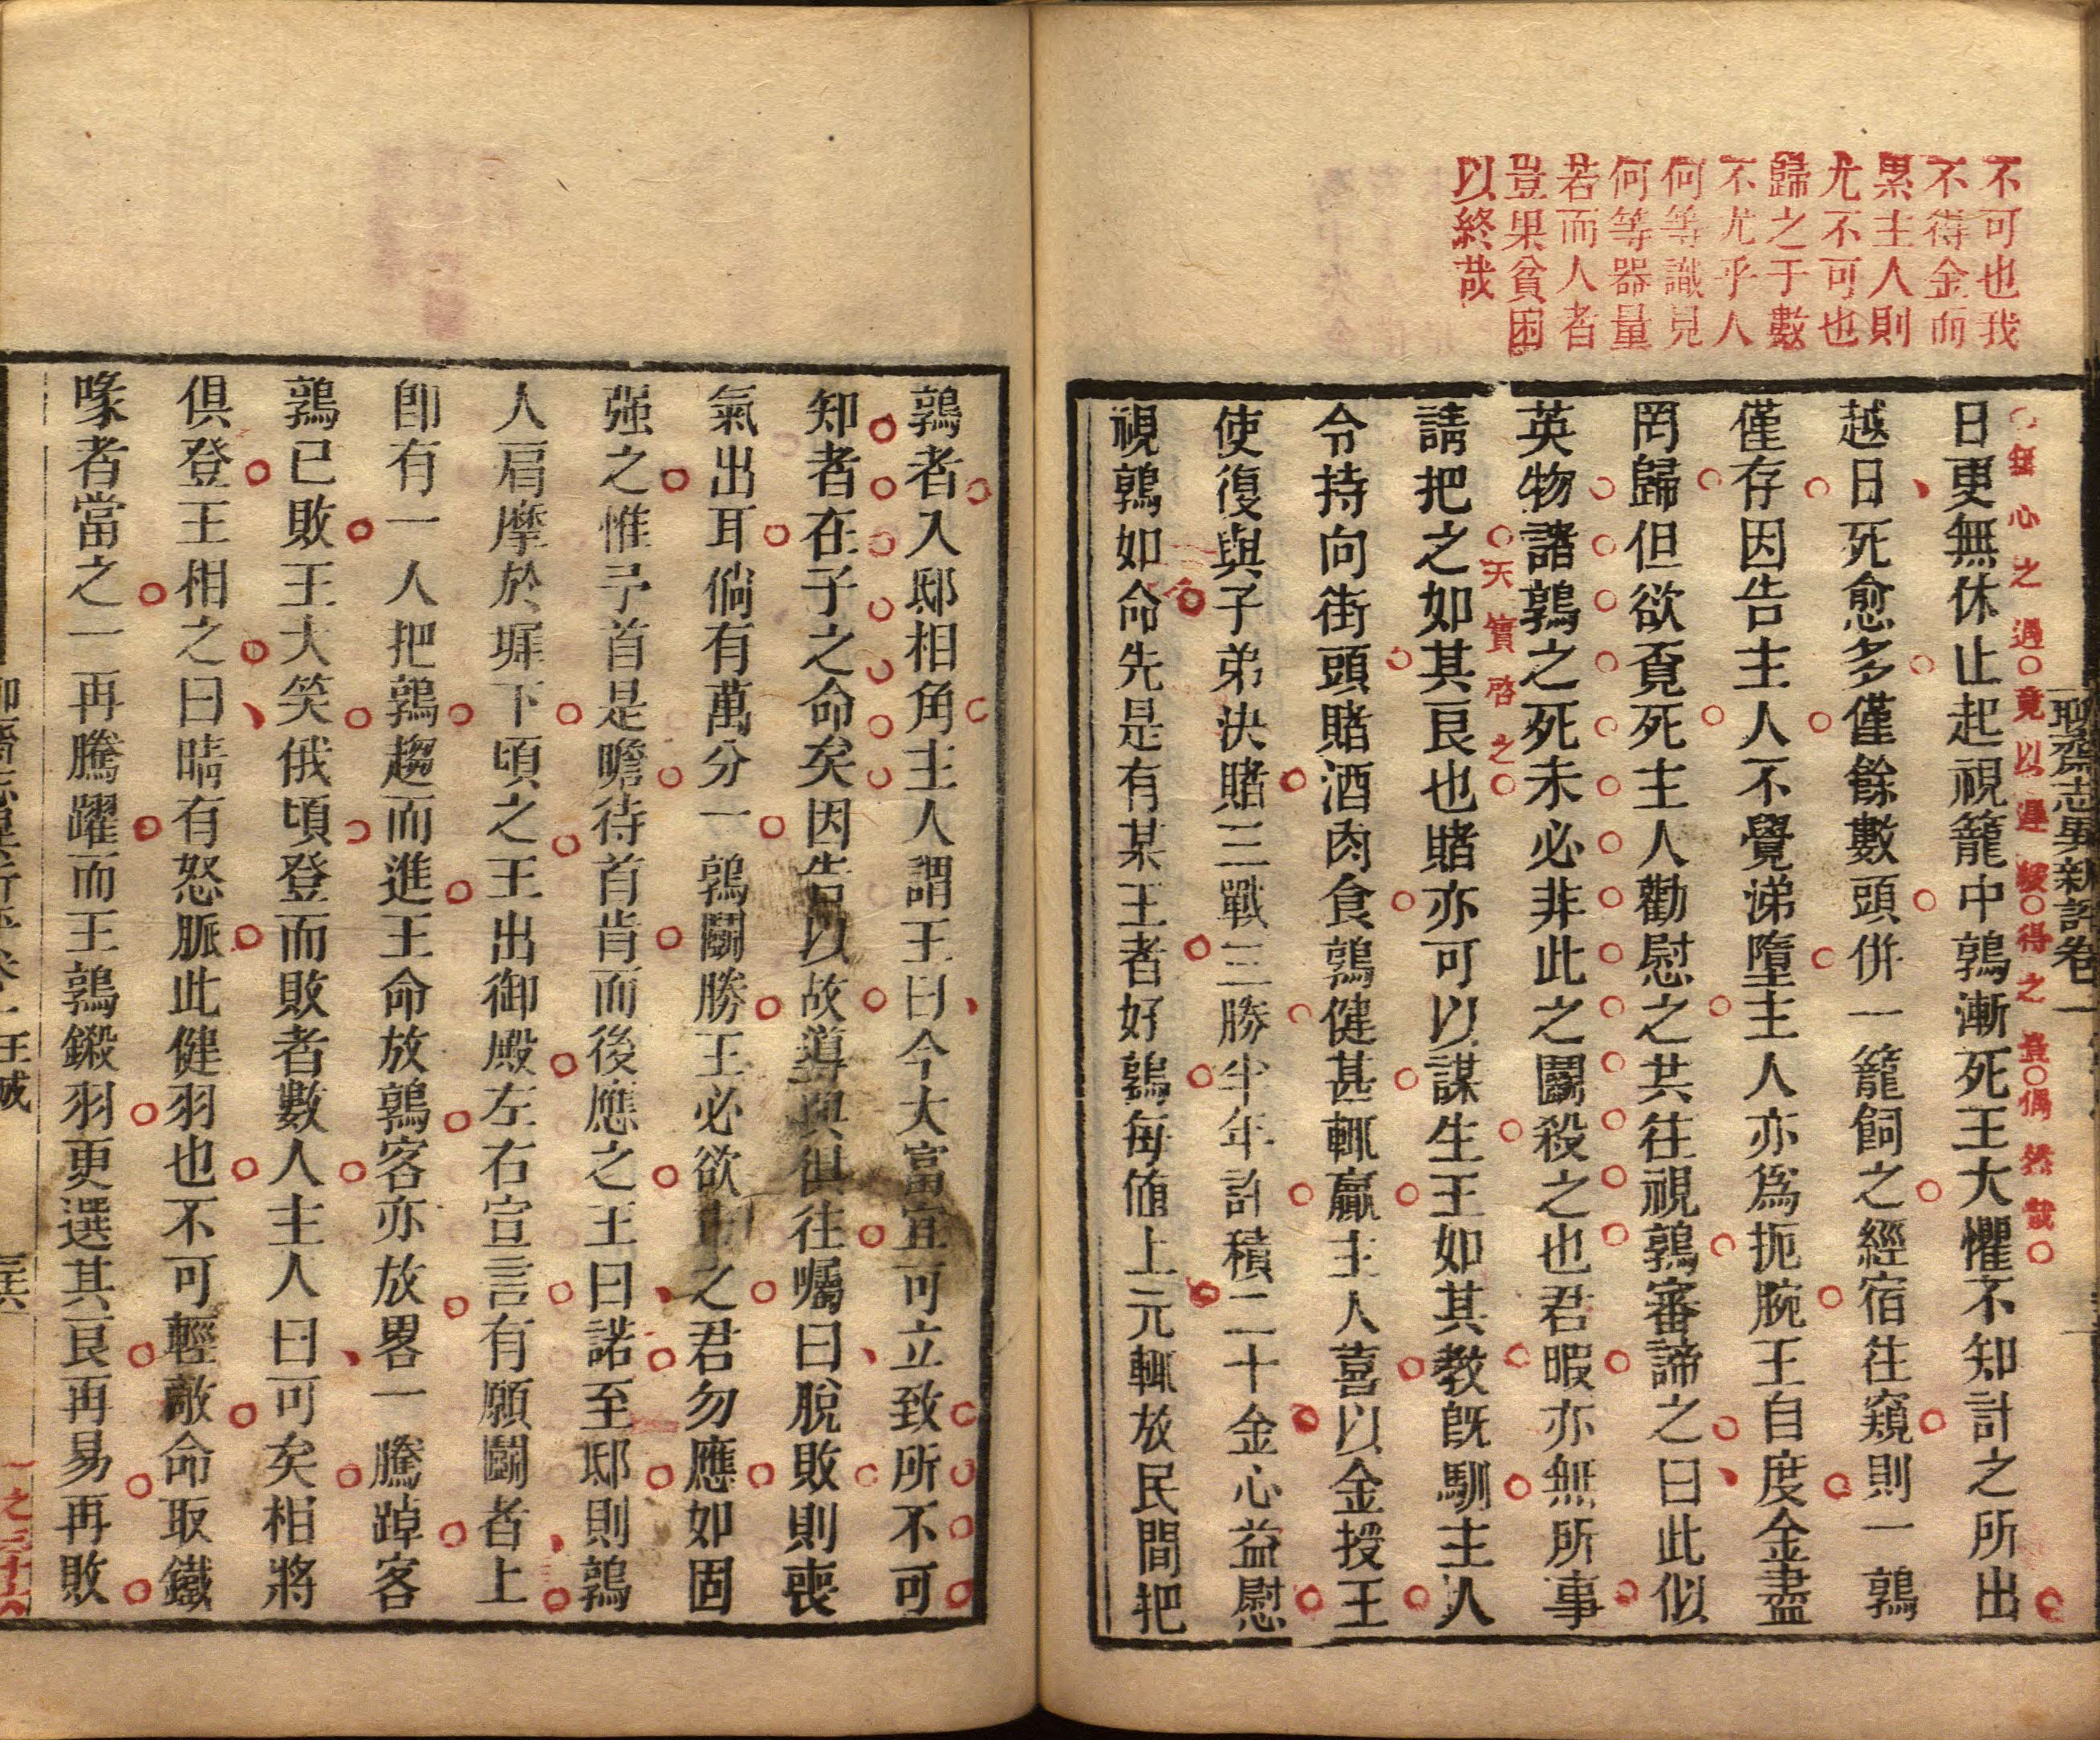 不可也我
不得金而
累主人則
尤不可也
歸之于數
不尤乎人
何等識見
何等器量
若而人者
豈果貧困
以終哉
聊齋志異新評卷一
無心之過○竟以遲緩○得之豈○偶然哉○
日更無休止起視籠中鶉漸死王大懼不知計之所出
越日死愈多僅餘數頭併一籠飼之經宿往窺則一鶉
僅存因告主人不覺涕墮主人亦爲扼腕王自度金盡
罔歸但欲覓死主人勸慰之共往視鶉審諦之曰此似
英物諸鶉之死未必非此之鬭殺之也君暇亦無所事
○天實啓之○
請把之如其良也賭亦可以謀生王如其教既馴主人
令持向街頭賭酒肉食鶉健甚輒贏主人喜以金授王
使復與子弟決賭三戰三勝半年許積二十金心益慰
視鶉如命先是有某王者好鶉每值上元輒放民間把
鶉者入邸相角主人謂王曰今大富宜可立致所不可
知者在子之命矣因告以故導與俱往囑曰脫敗則喪
氣出耳倘有萬分一鶉鬭勝王必欲市之君勿應如固
强之惟予首是瞻待首肯而後應之王曰諾至邸則鶉
人肩摩於墀下頃之王出御殿左右宣言有願鬭者上
卽有一人把鶉趨而進王命放鶉客亦放畧一騰踔客
鶉已敗王大笑俄頃登而敗者數人主人曰可矣相將
俱登王相之曰睛有怒脈此健羽也不可輕敵命取鐵
喙者當之一再騰躍而王鶉鎩羽更選其良再易再敗